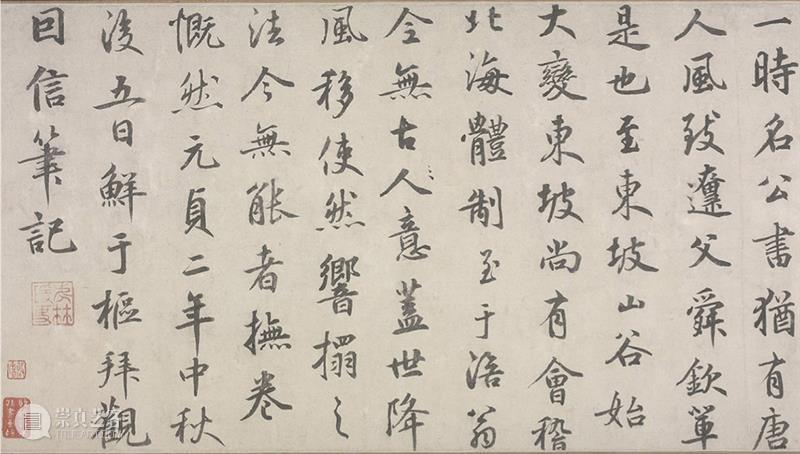 一時名公書猶有唐
人風致蘧父舜欽軰
是也至東坡山谷始
大變東坡尚有會稽
北海體制至于涪翁
全無古人意蓋世降
風移使然響搨之
法今無能者撫卷
慨然元貞二年中秋
後五日鮮于樞拜觀
因信筆記
崇真艺客